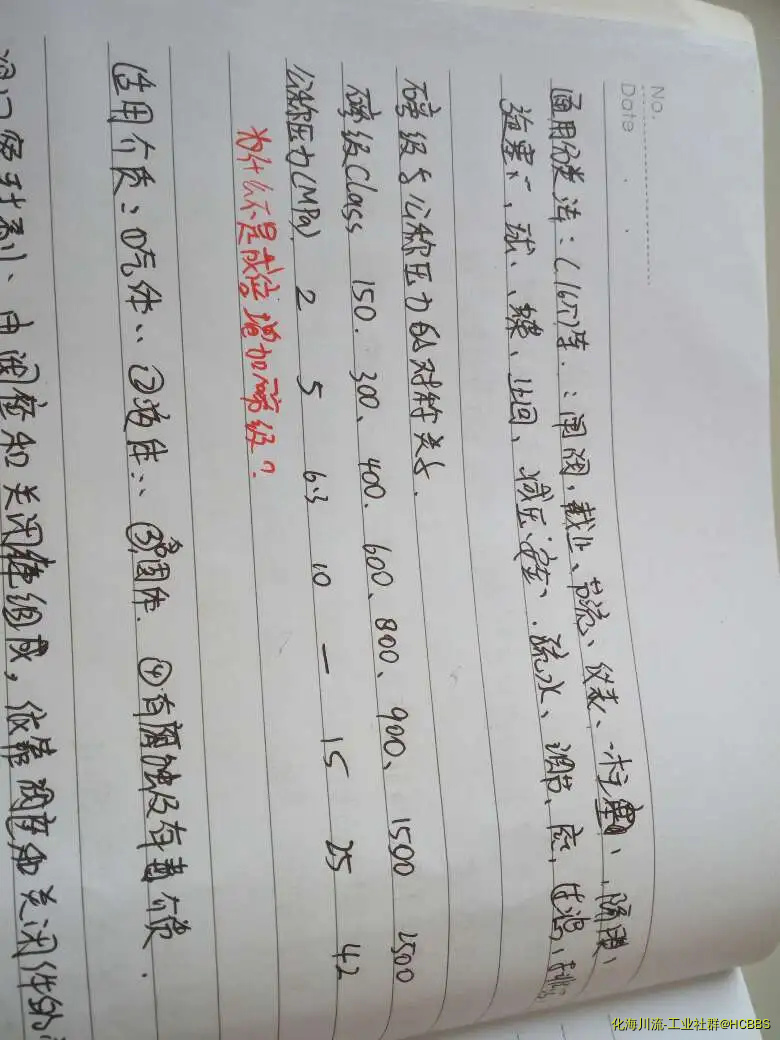 No.
Date
通用分类法：(16万)等.：闸阀，截止、节流、仪表、柱塞、隔膜、
旋塞、球、蝶、止回、减压、安全、疏水、调节、底、过滤、排
磅级与公称压力的对符关系.
磅级Class 150. 300、400. 600、800、900、1500 2500
公称压力(MPa) 2 5 6.3 10 — 15 25 42
为什么不是成倍增加磅级？
适用介质：①气体、②液体、③固体. ④有腐蚀及有毒介质.
阀门密封副、由阀座和关闭件组成，依靠阀座和关闭件的
化海川流-工业社群@HCBBS